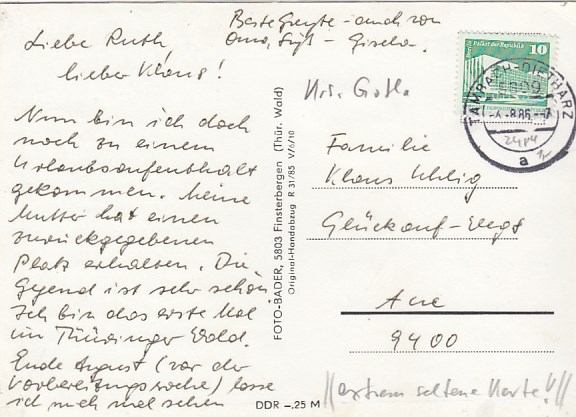 Beste Grüße - auch von
Oma, Gruß - Gisela.
Liebe Ruth,
lieber Klaus!
Nun bin ich doch
noch zu einem
Urlaubsaufenthalt
gekommen. Meine
Mutter hat einen
zurückgegebenen
Platz erhalten. Die
Gegend ist sehr schön.
Ich bin das erste Mal
im Thüringer Wald.
Ende August (vor der
Vorbereitungswoche) lasse
ich mich mal sehen
FOTO-BADER, 5803 Finsterbergen (Thür. Wald)
Original-Handabzug R 31/85 V/6/10
DDR -,25 M
Berlin, Palast der Republik
10
DDR
TAMBACH-DIETHARZ
5809
-4.-8.86.-7
a
Krs. Gotha
Familie
Klaus Uhlig
Glückauf-Weg 5
Aue
9400
//extrem seltene Karte!//